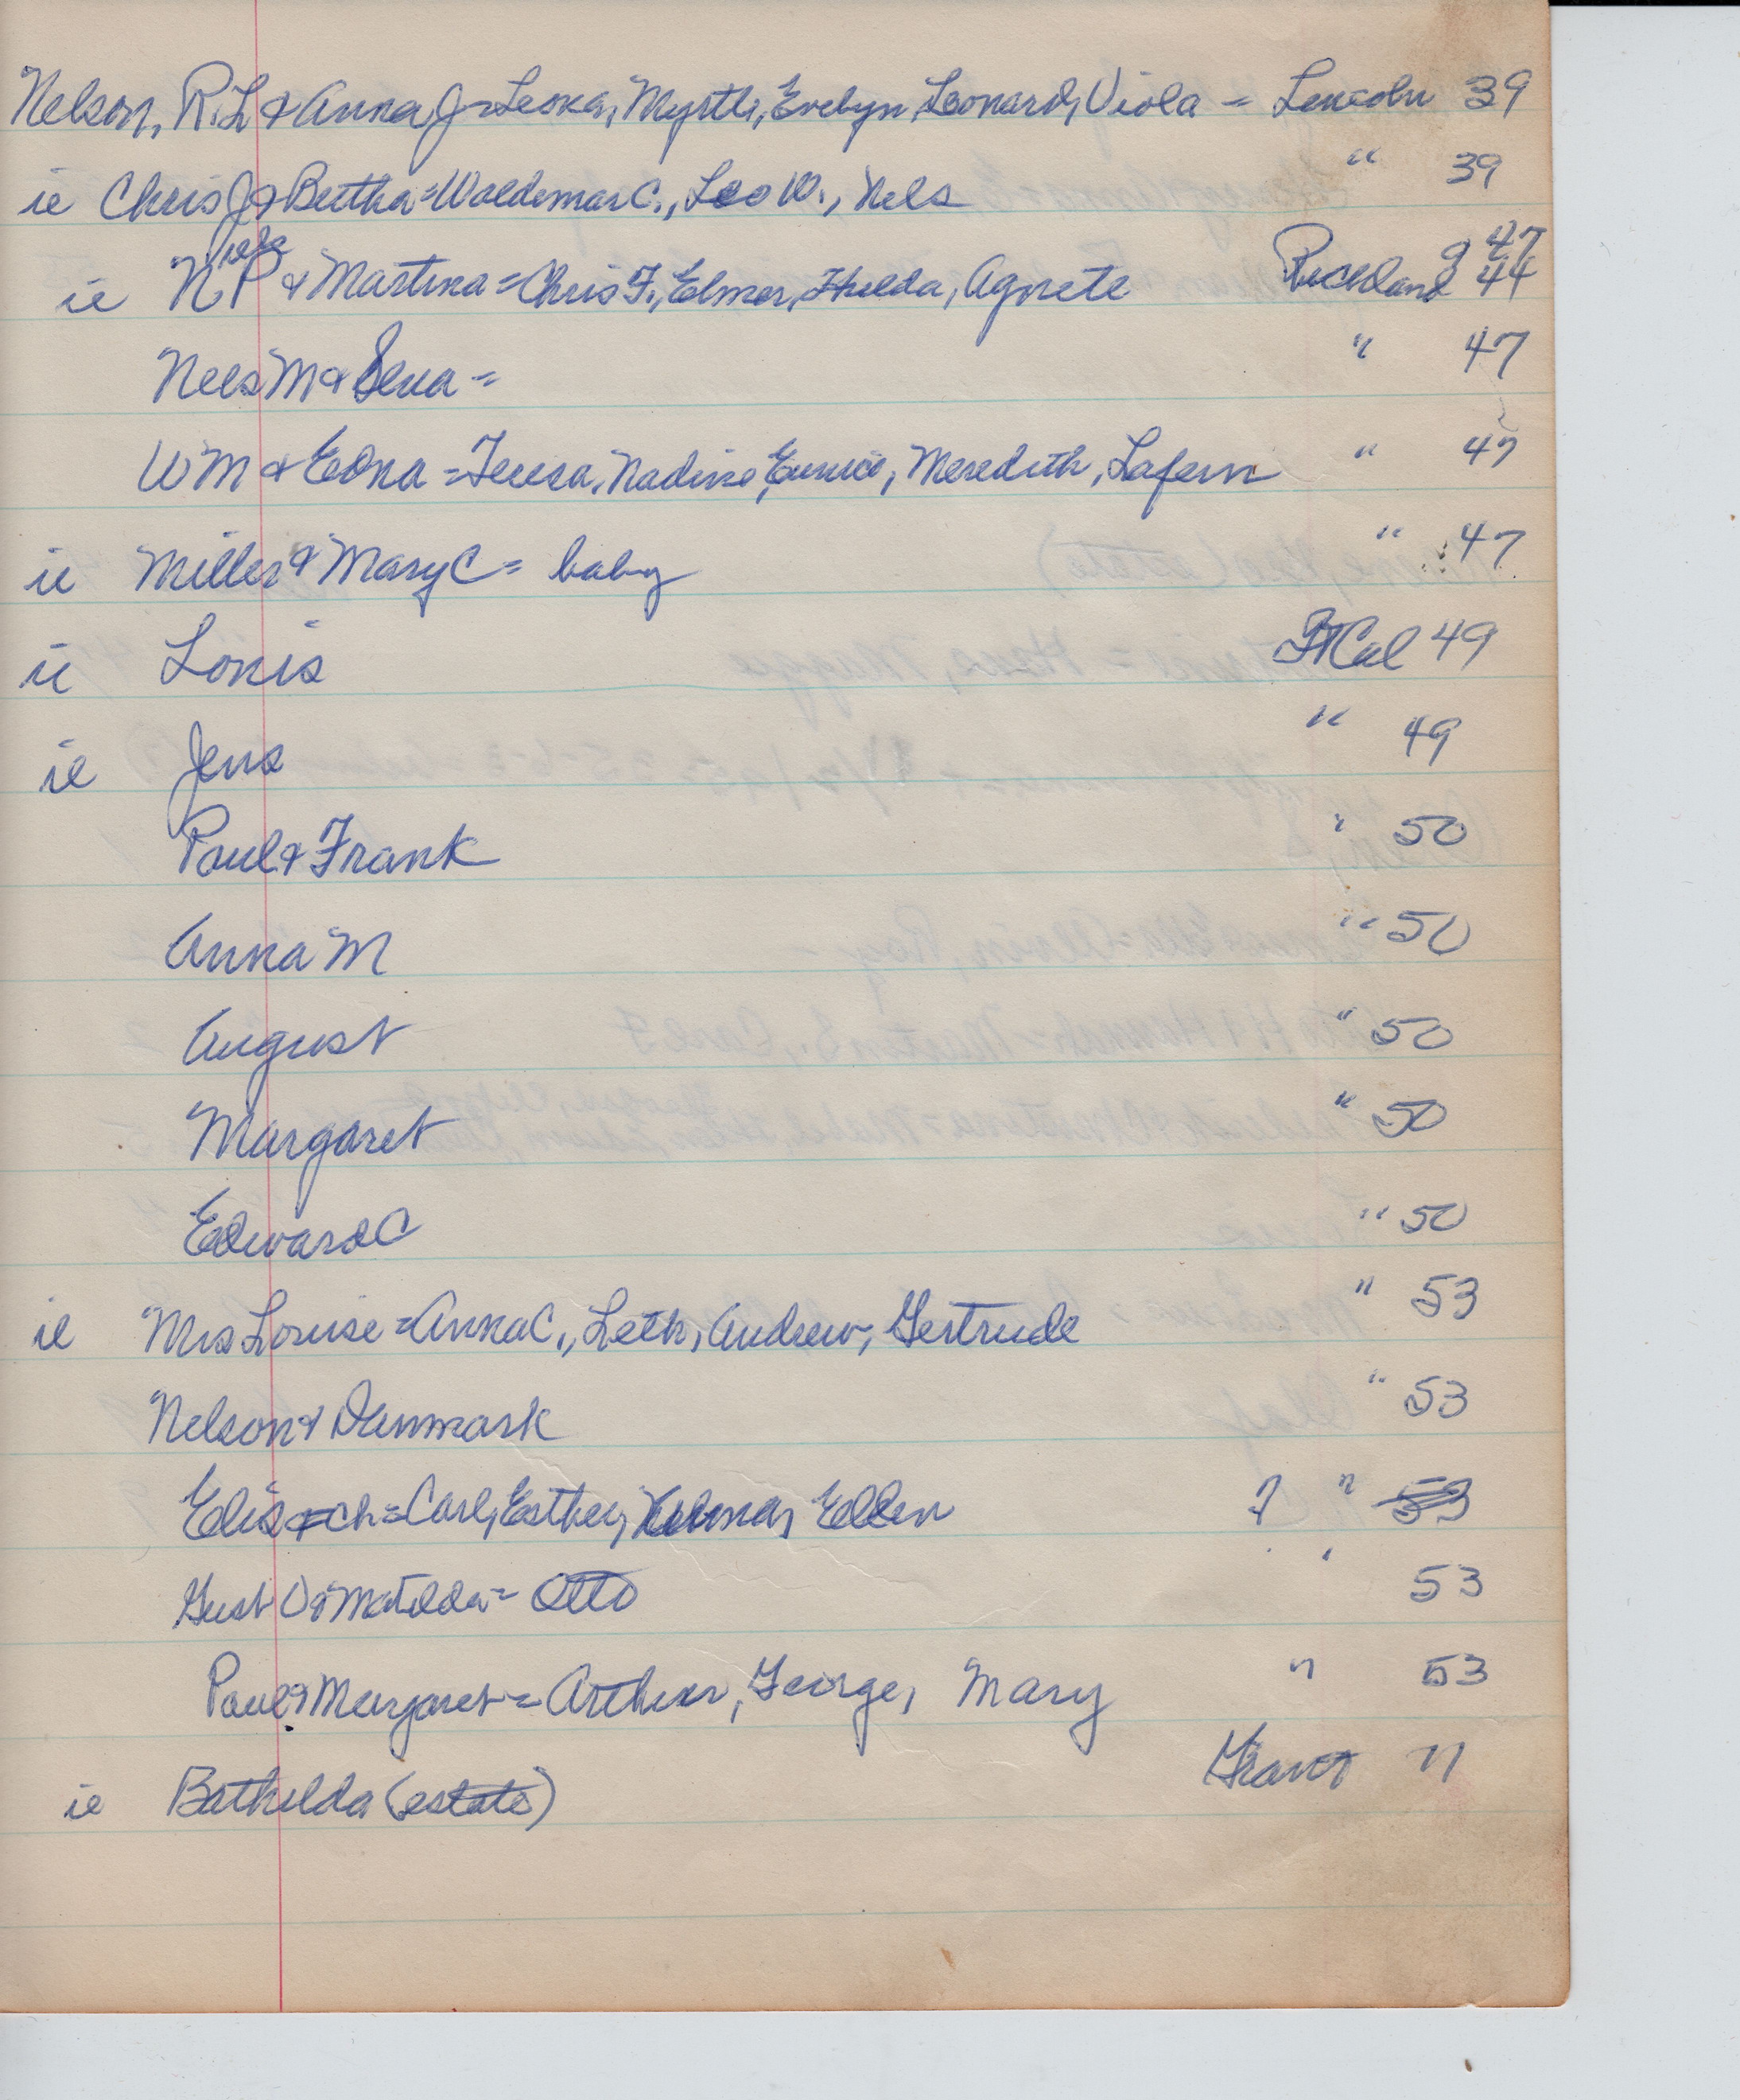 Nelson, R.L & Anna J = Leona, Myrtle, Evelyn, Leonard, Viola = Lincoln 39
ie Chris J & Bertha = Waldemar C., Leo W., Nels " 39
ie N P & Martina = Chris F., Elmer, Hulda, Agnete Richland 9 47 44
Nels M & Sena = " 47
WM & Edna = Teresa, Nadine, Eunice, Meredith, Lafern " 47
ie Miller & Mary C = baby " 47
ie Louis Ft Cal 49
ie Jens " 49
Paul & Frank " 50
Anna M " 50
August " 50
Margaret " 50
Edward C " 50
ie Mrs Louise = Anna C., Leth, Andrew, Gertrude " 53
Nelson & Denmark " 53
Elis & ch = Carl, Esther, Ellen ? " 53
Gust O & Matilda = Otto " 53
Paul & Margaret = Arthur, George, Mary " 53
ie Bathilda (estate) Grant 11